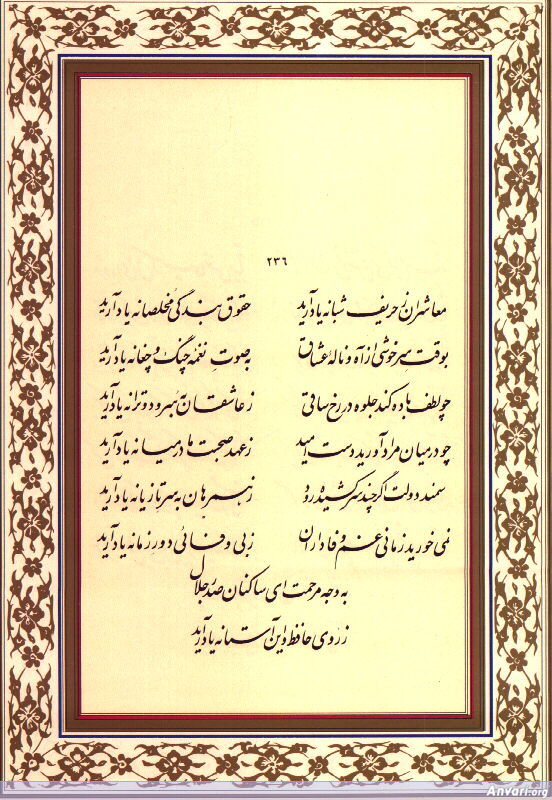 ۲۳۶
معاشران ز حریف شبانه یاد آرید حقوق بندگی مخلصانه یاد آرید
بوقت سرخوشی از آه و نالهٔ عشاق به صوت نغمه چنگ و چغانه یاد آرید
چو لطف باده کند جلوه در رخ ساقی ز عاشقان به سرود و ترانه یاد آرید
چو در میان مراد آورید دست امید ز عهد صحبت ما در میانه یاد آرید
سمند دولت اگر چند سرکشیده رود ز همرهان به سر تازیانه یاد آرید
نمی خورید زمانی غم وفاداران ز بی وفائی دور زمانه یاد آرید
به وجه مرحمت ای ساکنان صدر جلال
ز روی حافظ و این آستانه یاد آرید
Anvari.org